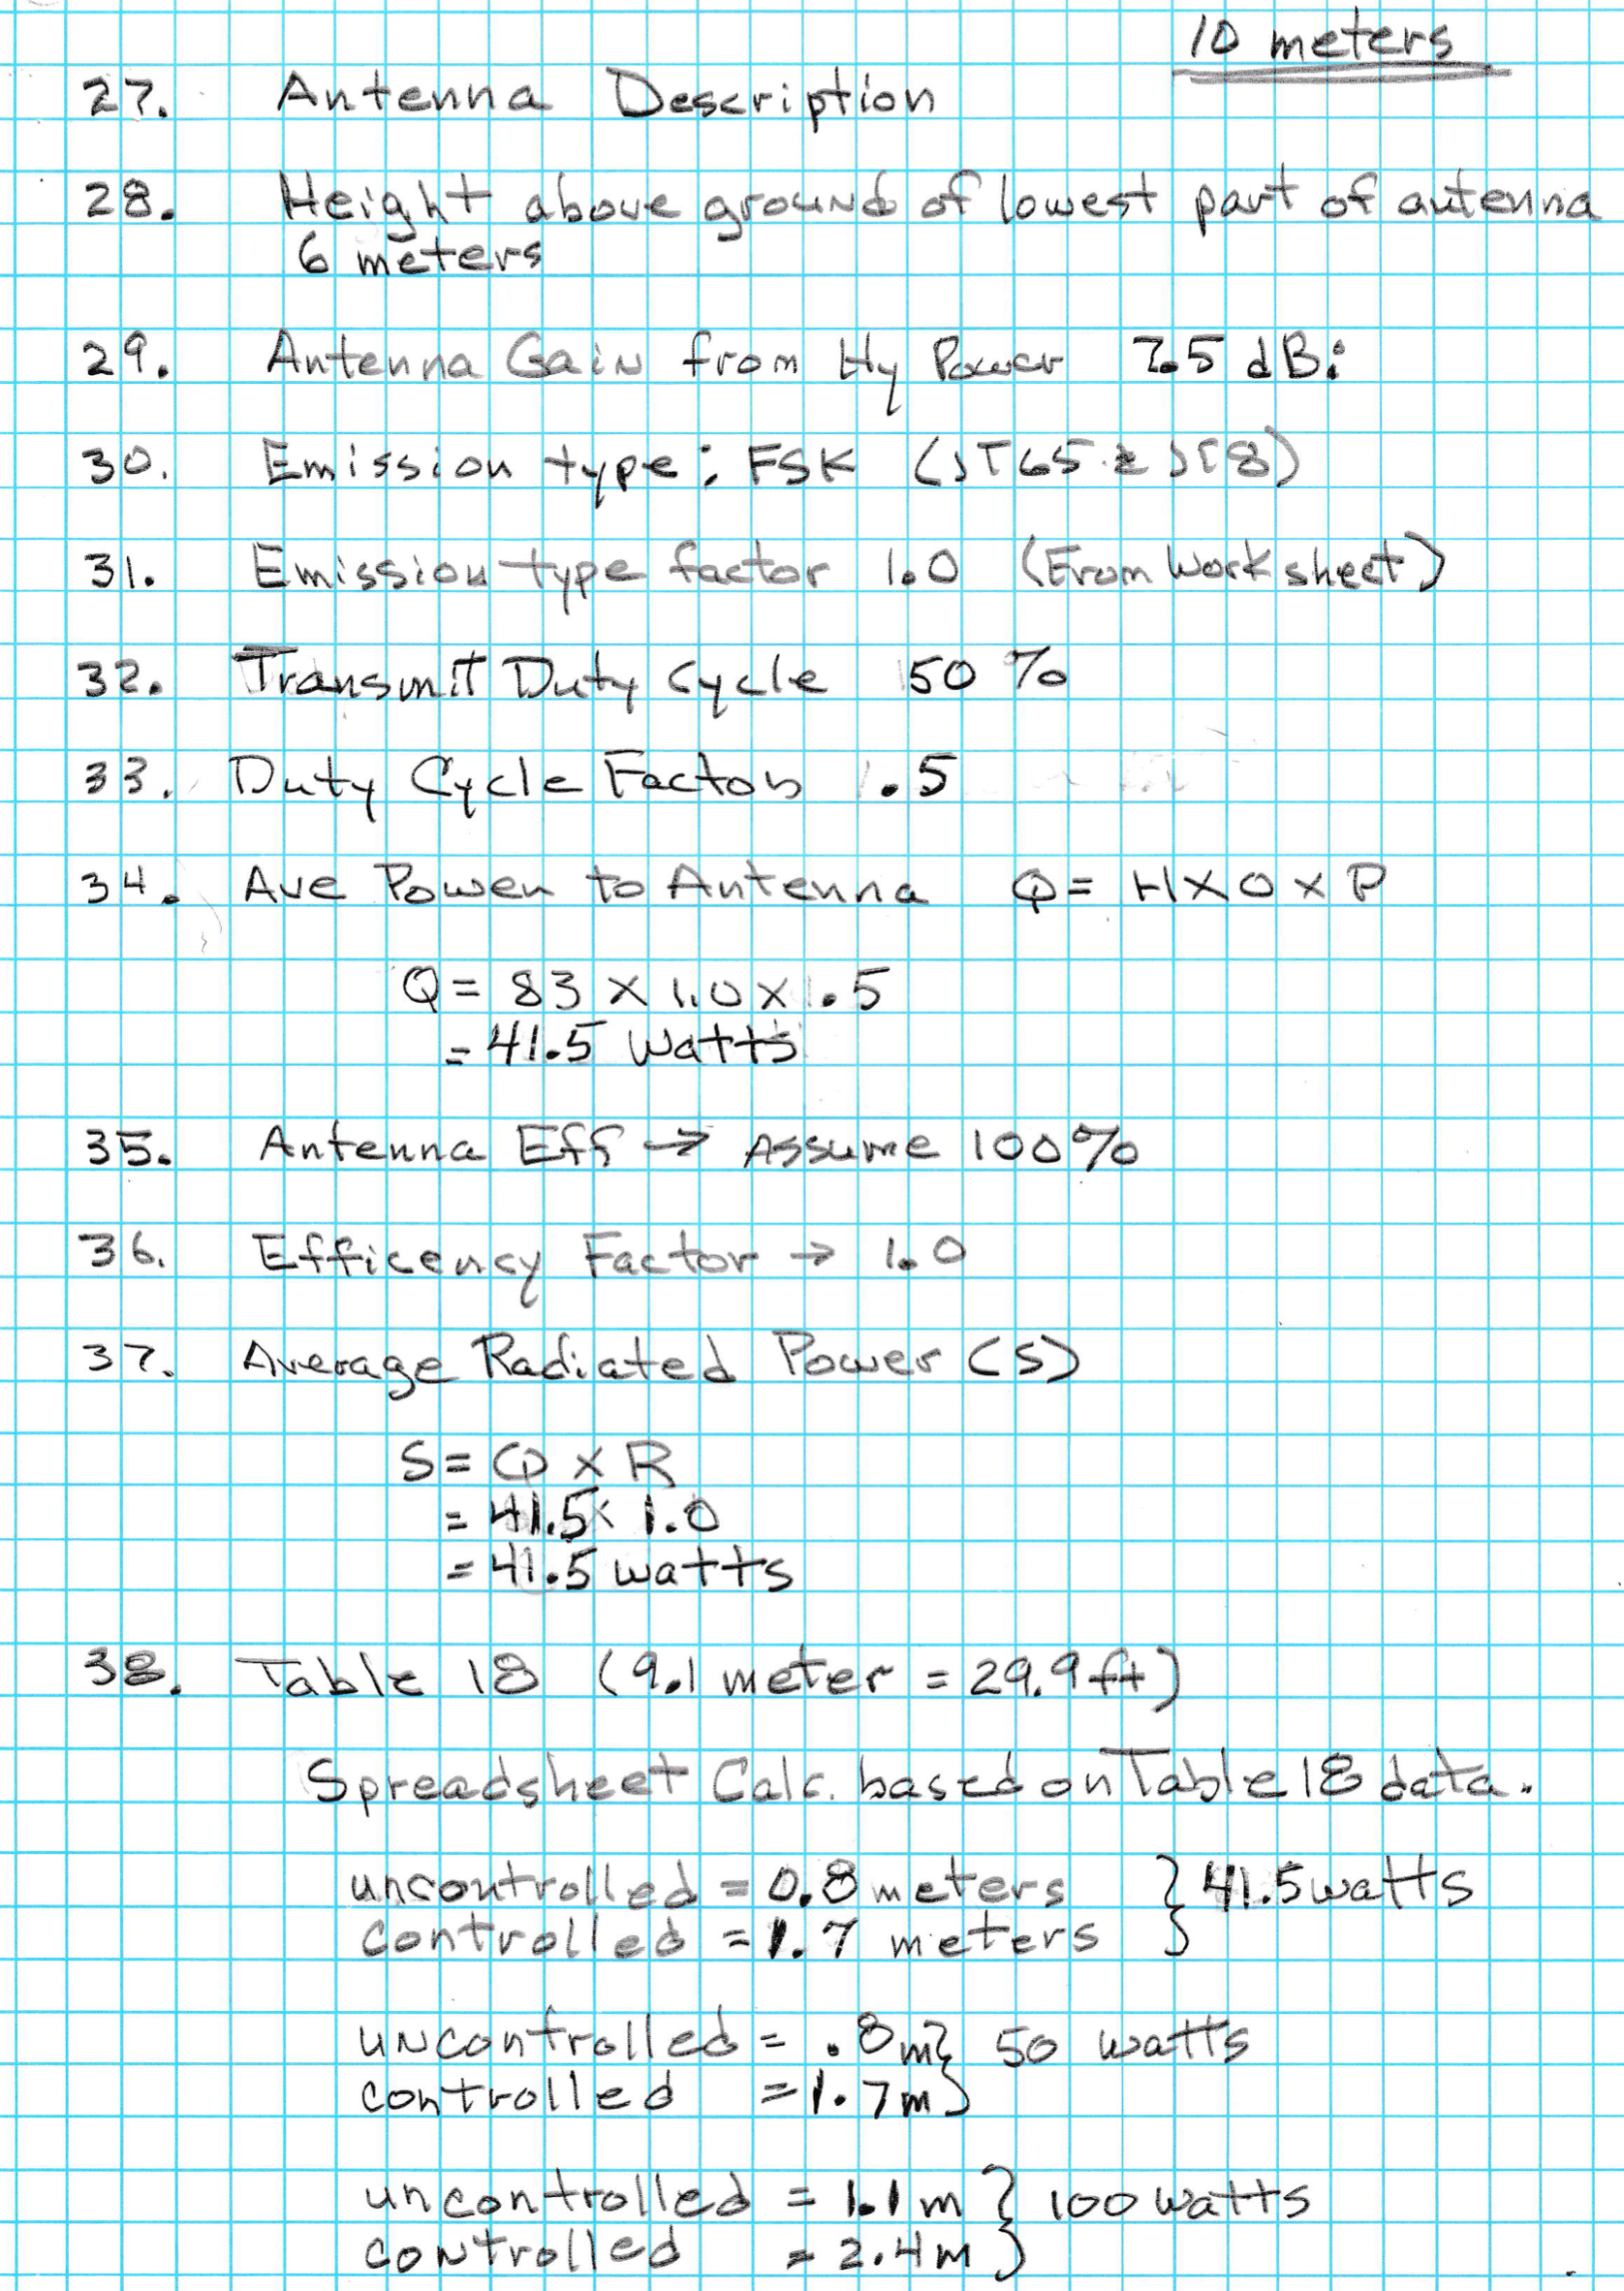 10 meters
27. Antenna Description
28. Height above ground of lowest part of antenna
6 meters
29. Antenna Gain from Hy Power 7.5 dBi
30. Emission type: FSK (JT65 & JT8)
31. Emission type factor 1.0 (From Work sheet)
32. Transmit Duty Cycle 50%
33. Duty Cycle Factor .5
34. Ave Power to Antenna Q = H X O X P
Q = 83 X 1.0 X .5
= 41.5 Watts
35. Antenna Eff → Assume 100%
36. Efficency Factor → 1.0
37. Average Radiated Power (S)
S = Q X R
= 41.5 X 1.0
= 41.5 watts
38. Table 18 (9.1 meter = 29.9 ft)
Spreadsheet Calc. based on Table 18 data.
uncontrolled = 0.8 meters } 41.5 watts
controlled = 1.7 meters
uncontrolled = .8m } 50 watts
controlled = 1.7m
uncontrolled = 1.1m } 100 watts
controlled = 2.4m